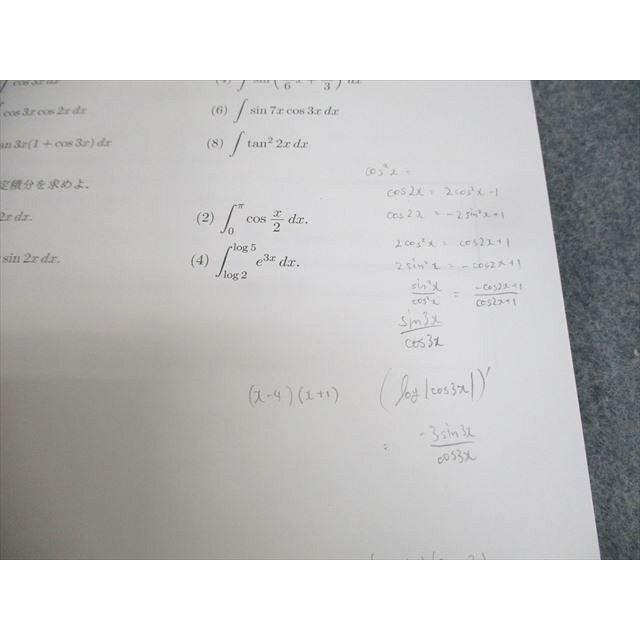 cos 3x cos 2x dx
(6) ∫ sin 7x cos 3x dx
an 3x(1 + cos 3x) dx
(8) ∫ tan² 2x dx
定積分を求めよ.
2x dx.
(2) ∫₀^π cos x/2 dx.
sin 2x dx.
(4) ∫_{log 2}^{log 5} e^{3x} dx.
cos²x =
cos2x = 2cos²x-1
cos2x = -2sin²x+1
2cos²x = cos2x+1
2sin²x = -cos2x+1
sin²x/cos²x = -cos2x+1/cos2x+1
sin3x/cos3x
(x-4)(x+1)
(log|cos3x|)'
= -3sin3x/cos3x